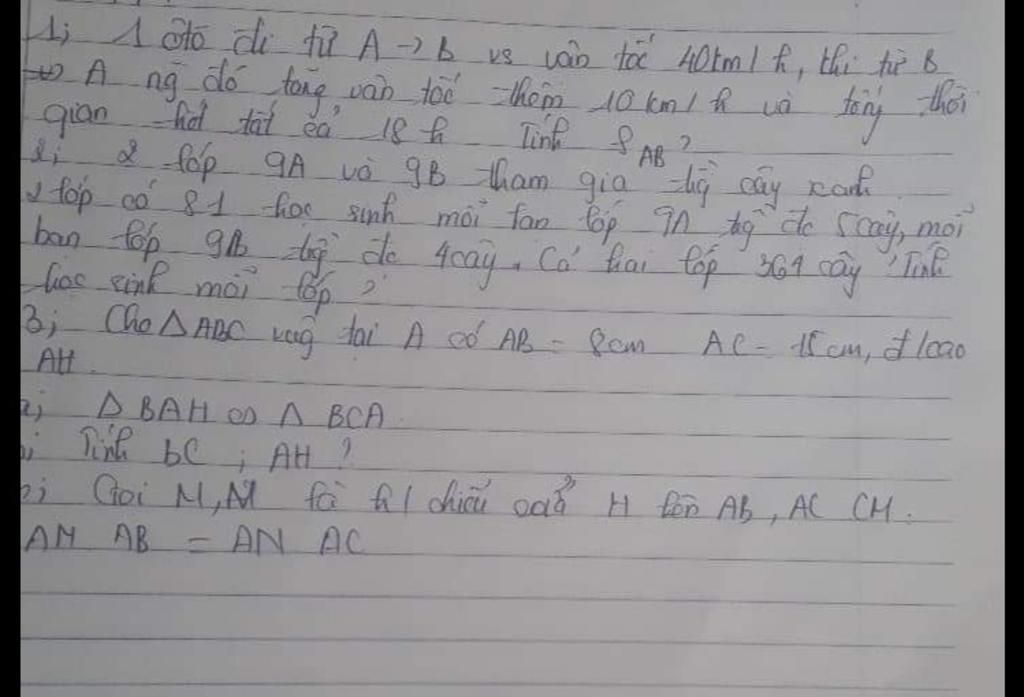 1; 1 ôtô đi từ A → B vs vận tốc 40km/h, khi từ B
→ A ng đó tăng vận tốc thêm 10km/h và tổng thời
gian hết tất cả 18h Tính S AB?
2; 2 lớp 9A và 9B tham gia trồng cây xanh
2 lớp có 81 học sinh mỗi bạn lớp 9A trồng đc 5cây, mỗi
bạn lớp 9B trồng đc 4cây. Cả hai lớp 364 cây Tính
học sinh mỗi lớp?
3; Cho ΔABC vuông tại A có AB = 8cm AC = 15cm, đ/cao
AH.
a; Δ BAH ∽ Δ BCA.
Tính bC ; AH?
Gọi M, N là h/chiếu của H lên AB, AC CM.
AM AB = AN AC